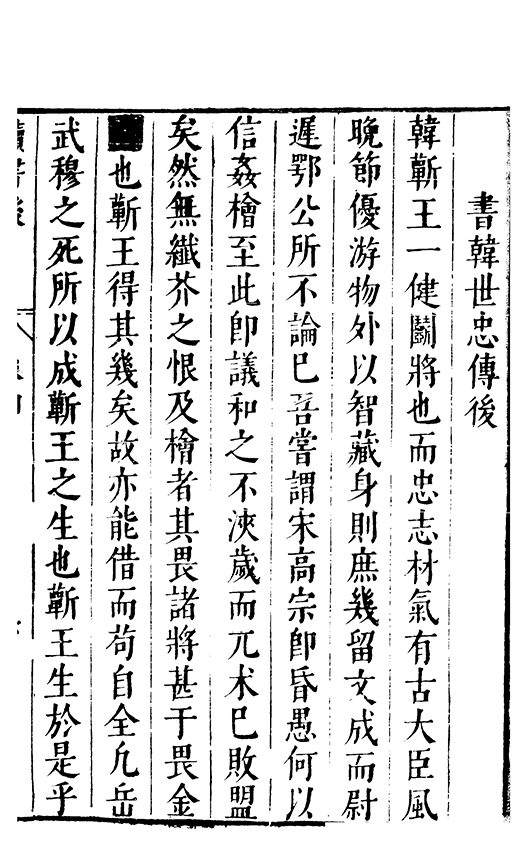 書韓世忠傳後
韓蘄王一健鬬將也而忠志材氣有古大臣風
晩節優游物外以智藏身則庶幾留文成而尉
遲鄂公所不論巳吾嘗謂宋高宗卽昏愚何以
信姦檜至此卽議和之不浹歲而兀术巳敗盟
矣然無纖芥之恨及檜者其畏諸將甚于畏金
也蘄王得其幾矣故亦能借而茍自全凢岳
武穆之死所以成蘄王之生也蘄王生於是乎
讀書後